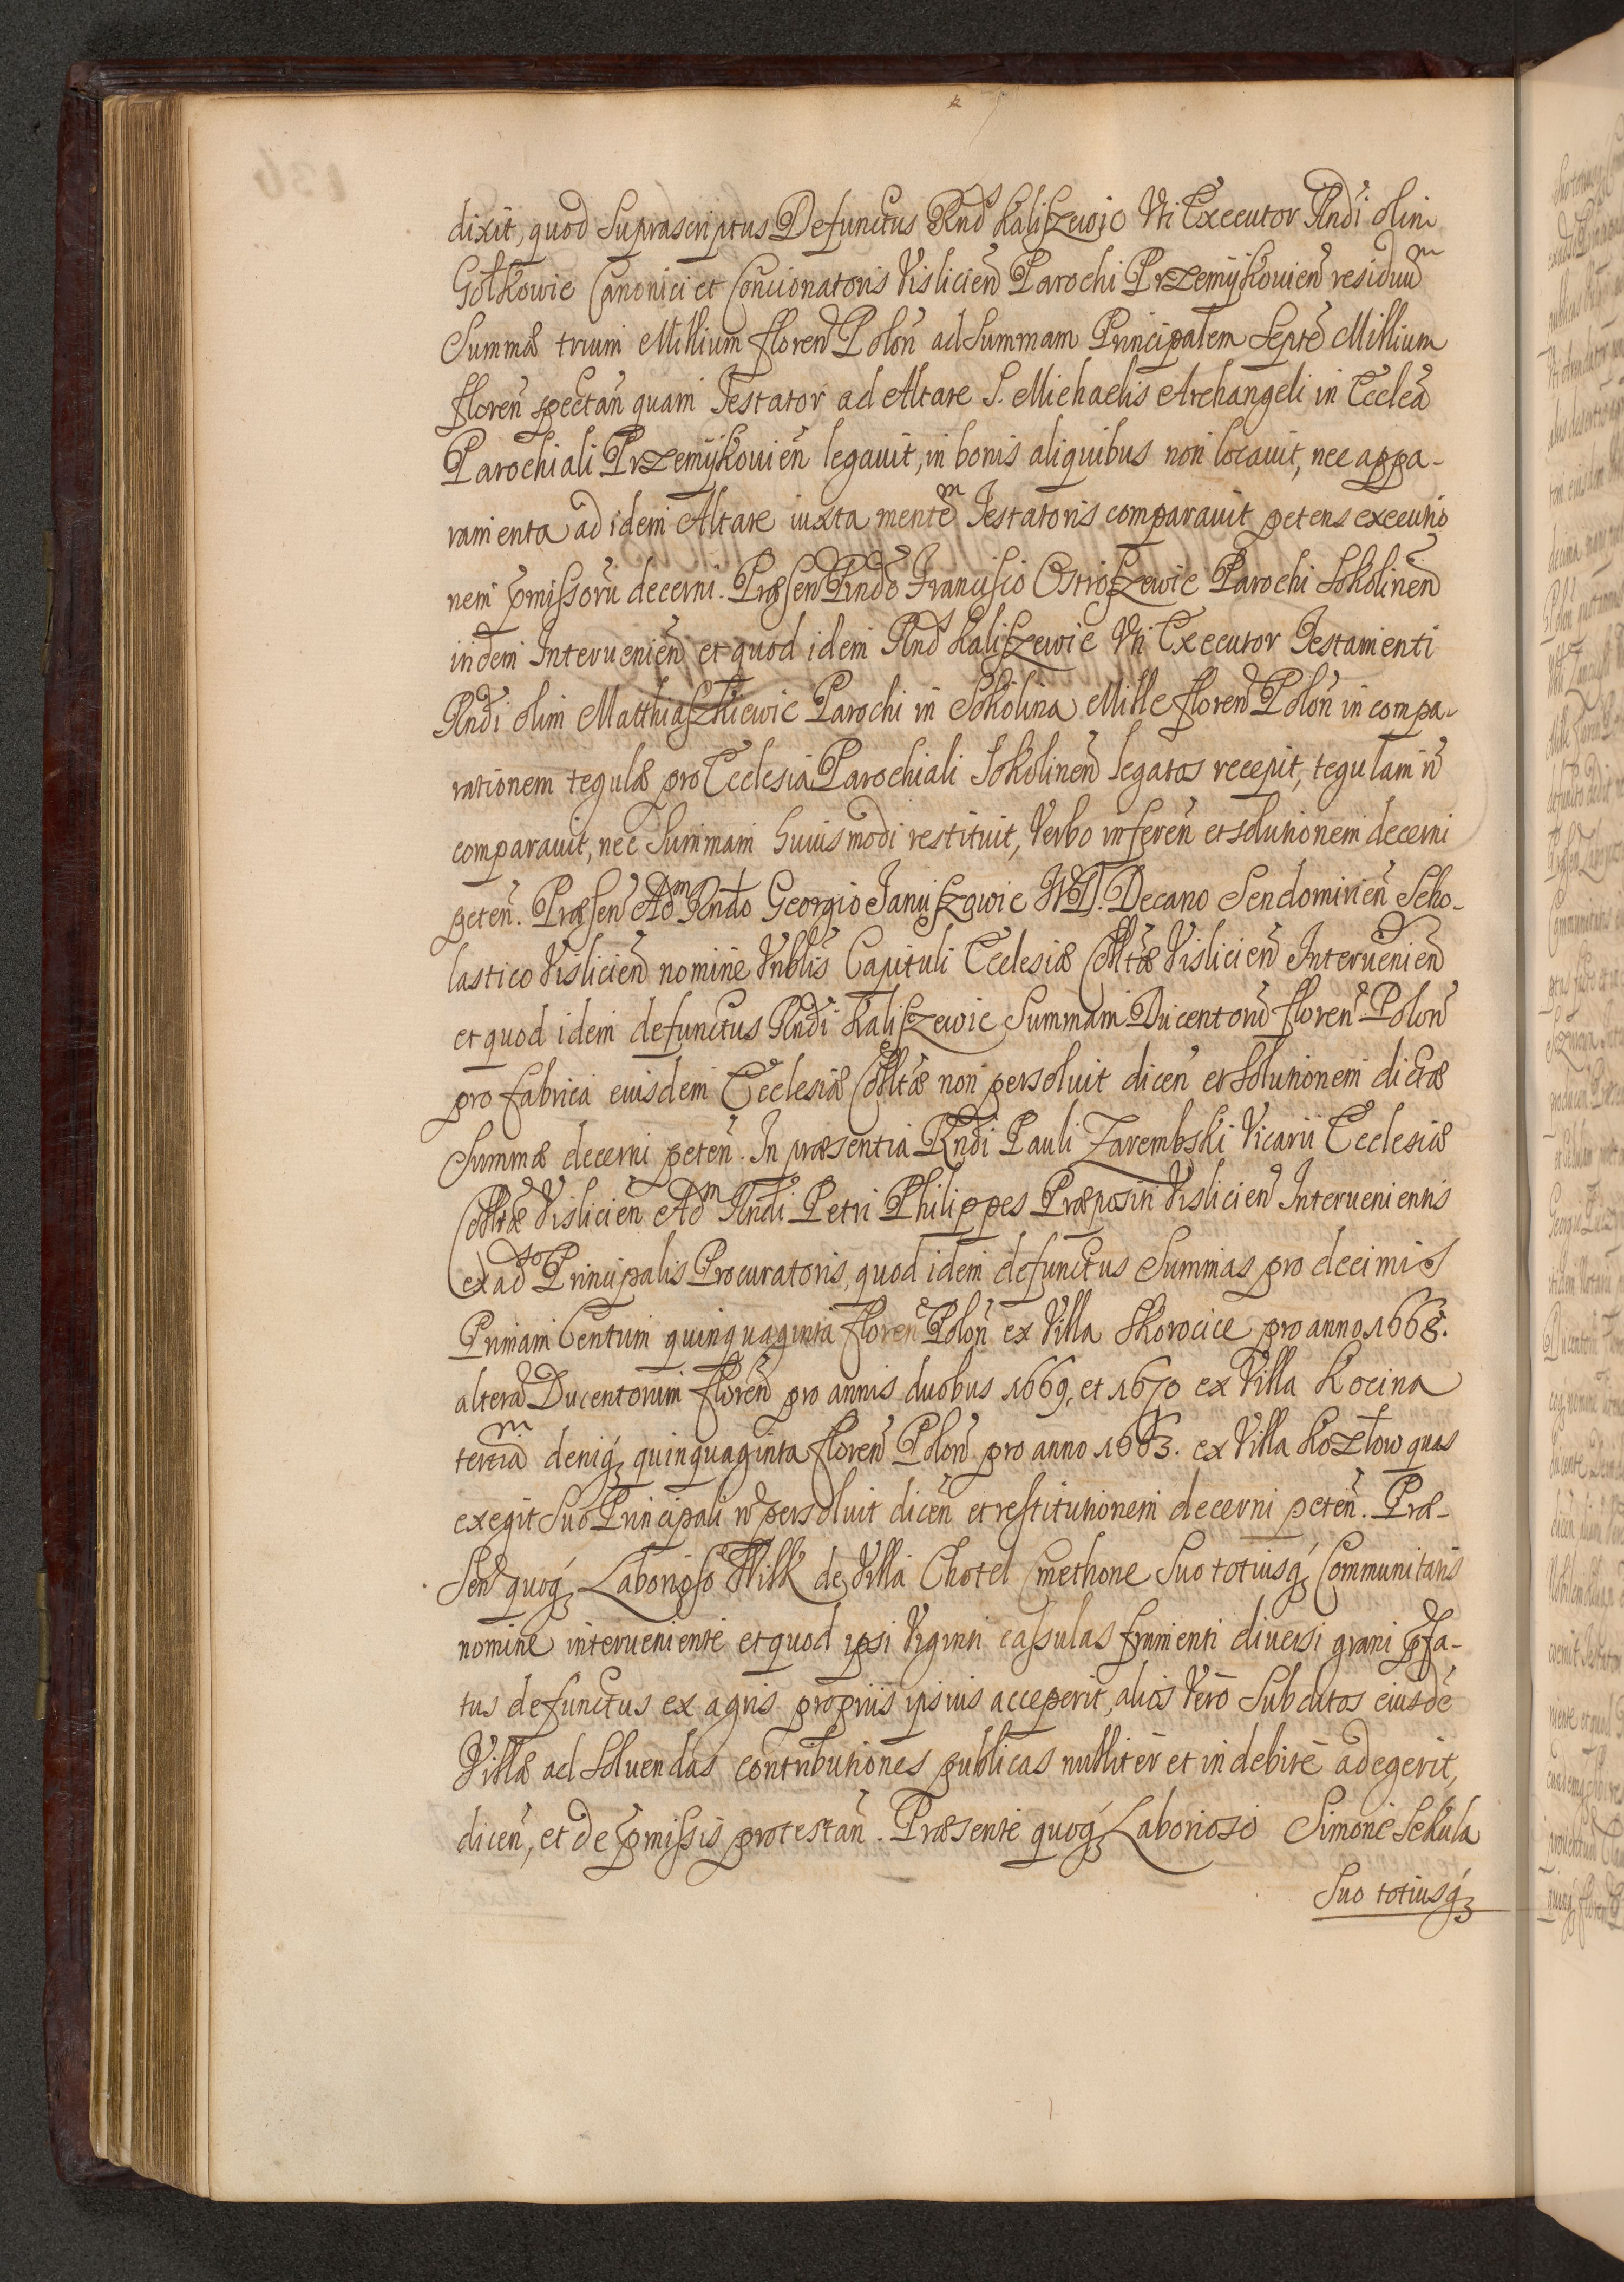 dixit, quod Suprascriptus Defunctus Rnds Kaliszewic Uti Executor Rndi olim
Gołkowic Canonici et Concionatoris Vislicien̄ Parochi Przemÿkovien̄ residuūm
Summæ trium Millium floren̄ Polon̄ ad Summam Principalem Septē Millium
floren̄ spectan̄ quam Testator ad Altare S. Michaelis Archangeli in Ecclēa
Parochiali Przemÿkovien̄ legavit, in bonis aliquibus non locavit, nec appa-
ramenta ad idem Altare iuxta mentēm Testatoris comparavit petens executio
nem p̄missorū decerni. Præsen̄ Rndo Francisco Ostroszewic Parochi Sokolinen̄
indem Intervenien̄ et quod idem Rnds Kaliszewic Uti Executor Testamenti
Rndi olim Matthiaszkiewic Parochi in Sokolina Mille floren̄ Polon̄ in compa-
rationem tegulæ pro Ecclesia Parochiali Sokolinen̄ legatos recepit, tegulam n̄
comparavit, nec Summam huiusmodi restituit, Verbo inferen̄ et solutionem decerni
peten̄. Præsen̄ Adm Rndo Georgio Januszowic Decano Sendomirien̄ Scho-
lastico Vislicien̄ nomine Vnblis Capituli Ecclesiæ Colltæ Vislicien̄ Intervenien̄
et quod idem defunctus Rndi Kaliszewic Summam Ducentorū floren̄ Polon̄
pro fabrica eiusdem Ecclesiæ Colltæ non persoluit dicen̄ et Solutionem dictæ
Summæ decerni peten̄. In præsentia Rndi Pauli Zarembski Vicarii Ecclesiæ
Colltæ Vislicien̄ Adm Rndi Petri Philippes Præpositi Vislicien̄ Intervenientis
ex adso Principalis Procuratoris, quod idem defunctus Summas pro decimis
Primam Centum quinquaginta floren̄ Polon̄ ex Villa Skorocice pro anno 1668.
alterā Ducentorum floren̄ pro annis duobus 1669, et 1670 ex Villa Kocina
tertiām deniq́ȝ quinquaginta floren̄ Polon̄ pro anno 1663. ex Villa Kozłow quas
exegit Suo Principali n̄ persoluit dicen̄ et restitutionem decerni peten̄. Præ-
sen̄ quoq́ȝ Laborioso Wilk de Villa Chotel Cmethone Suo totiusq́ȝ Communitatis
nomine interveniente et quod ipsi Viginti cassulas frumenti diversi grani p̄fa-
tus defunctus ex agris propriis ipsius acceperit, alios Vero Subditos eiusdē
Villæ ad Solvendas contributiones publicas nulliter et indebite adegerit,
dicen̄, et de p̄missis protestan̄. Præsente quoq́ȝ Laborioso Simone Sekula
Suo totiusq́ȝ